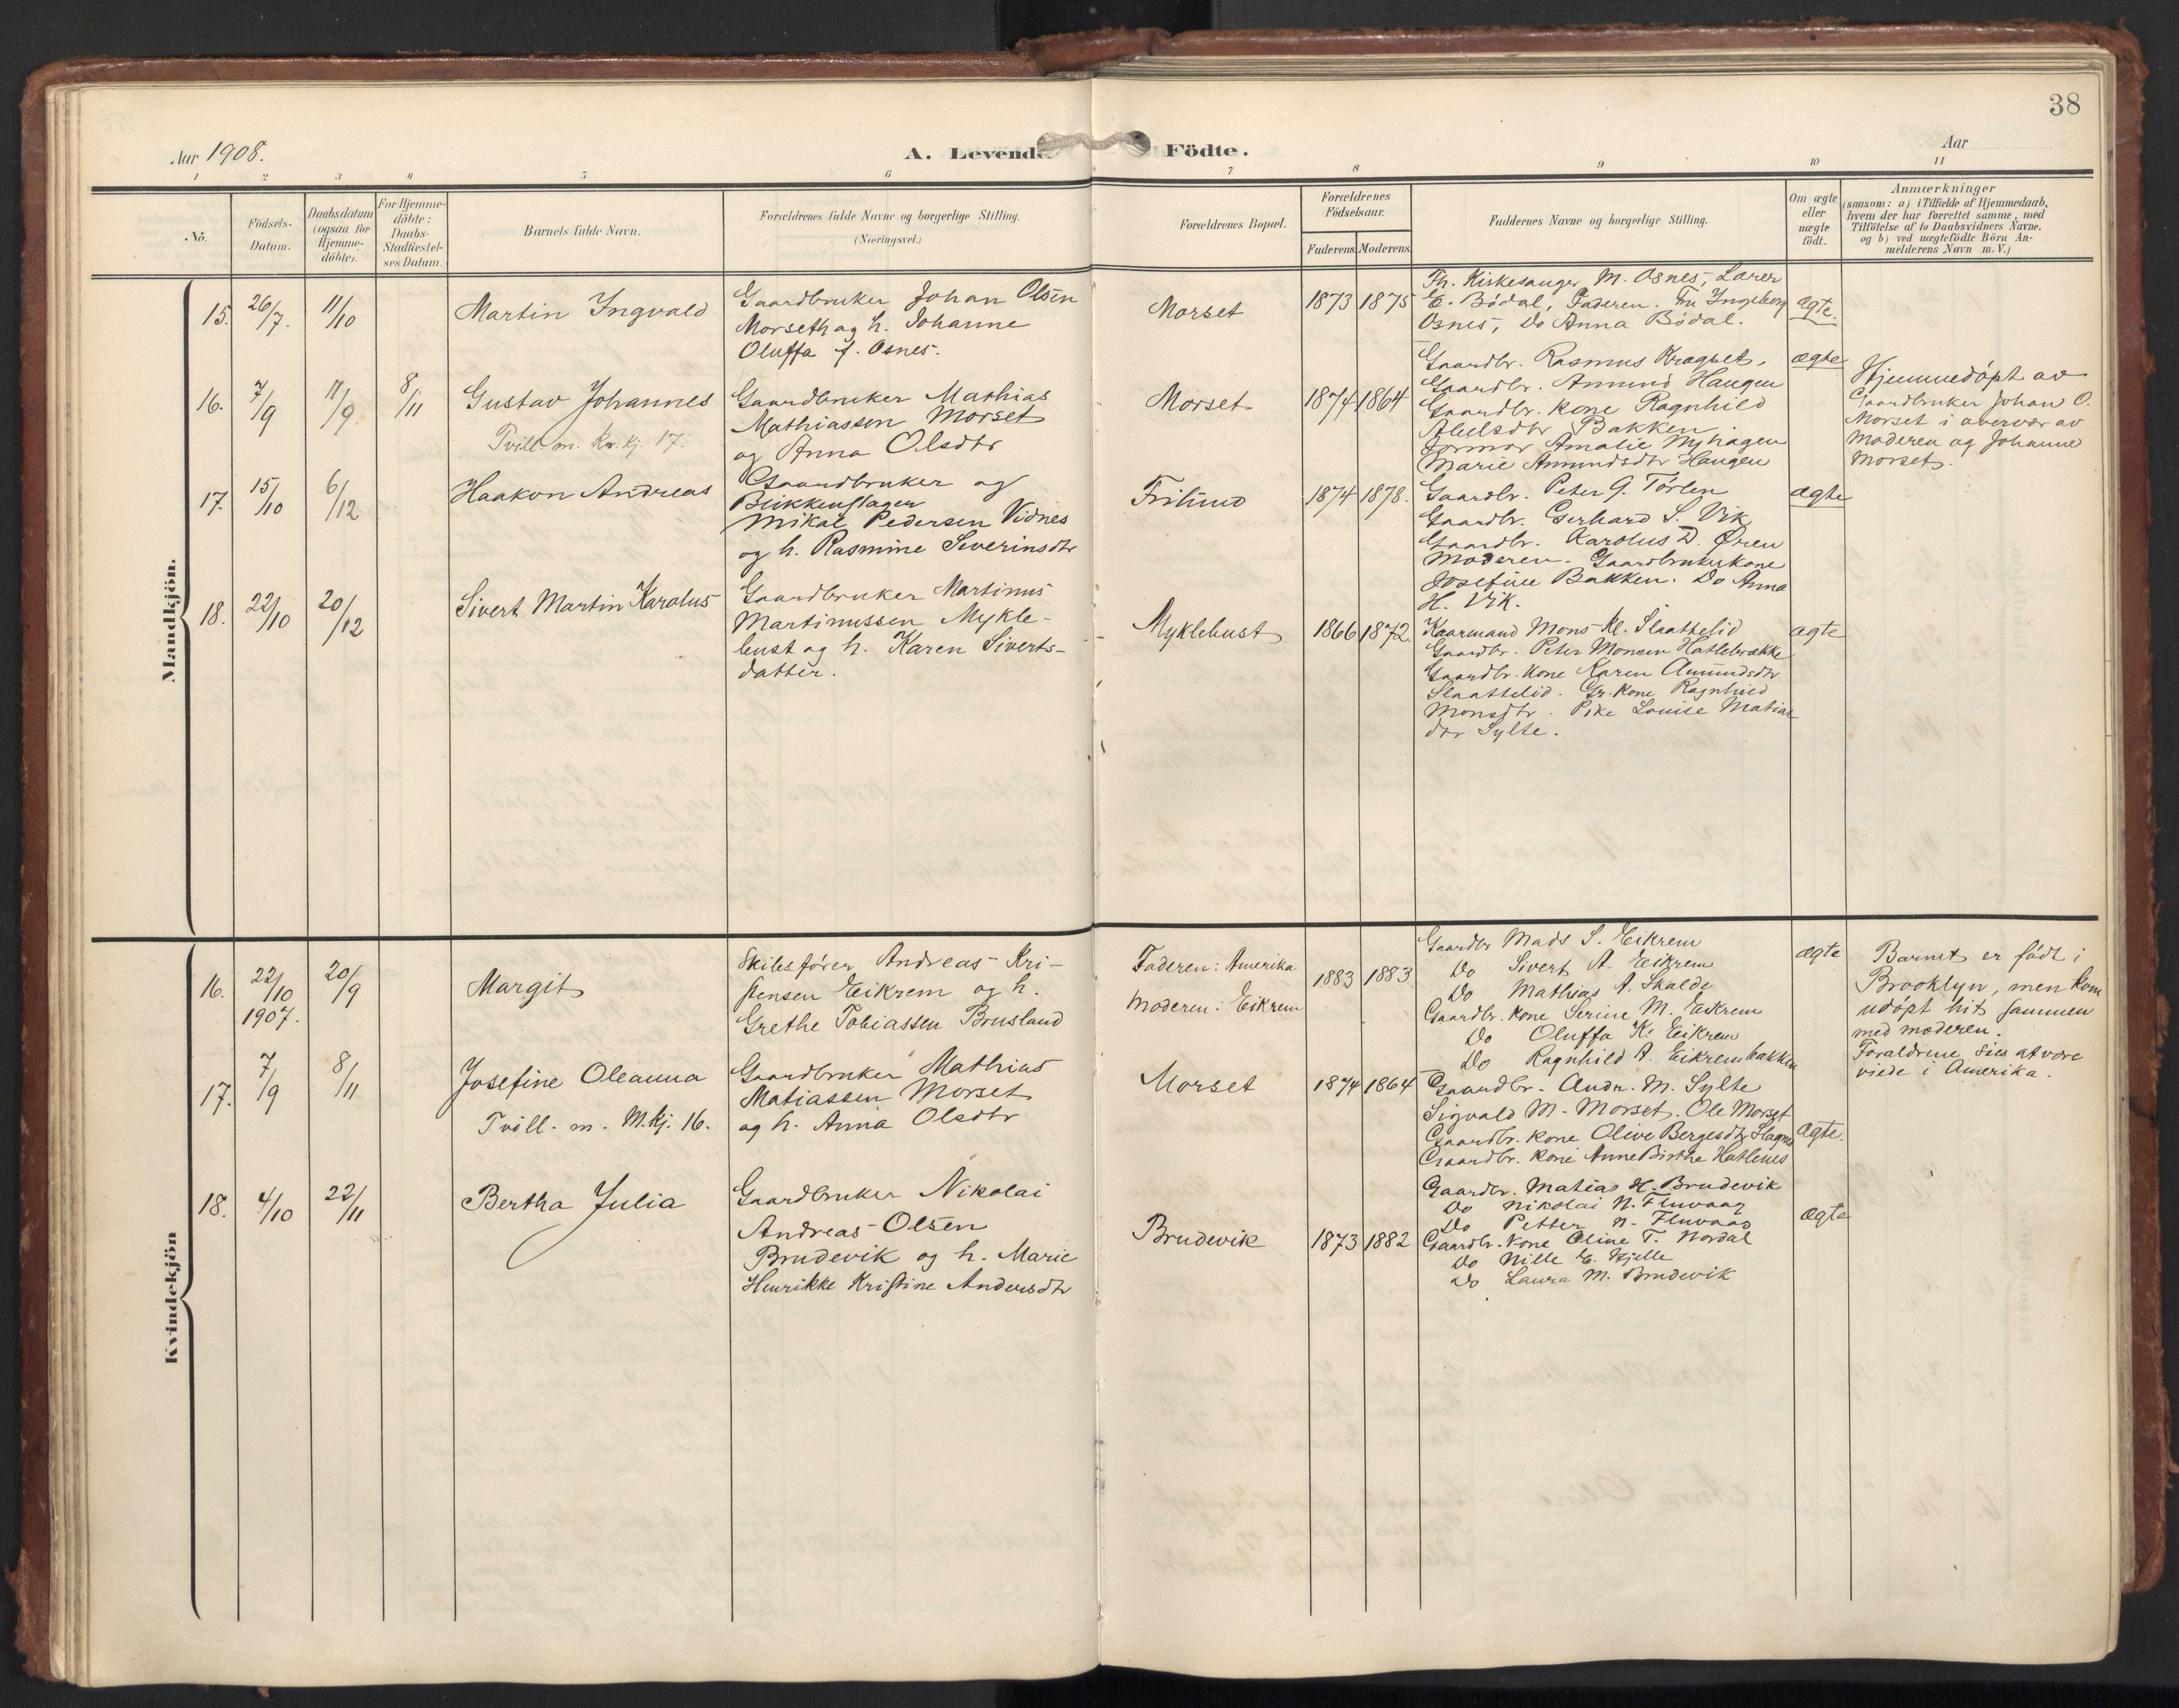 38
Aar 1908.
A. Levende Födte.
Aar
1 2 3 4 5 6 7 8 9 10 11
No.
Födsels-
Datum.
Daabsdatum
(ogsaa for
Hjemme-
döbte).
For Hjemme-
döbte:
Daabs-
Stadfæstel-
ses Datum.
Barnets fulde Navn.
Forældrenes fulde Navne og borgerlige Stilling.
(Næringsvei.)
Forældrenes Bopæl.
Forældrenes
Födselsaar.
Faderens. Moderens.
Faddernes Navne og borgerlige Stilling.
Om ægte
eller
uægte
födt.
Anmærkninger
(saasom: a) i Tilfælde af Hjemmedaab,
hvem der har forrettet samme, med
Tilföielse af to Daabsvidners Navne.
og b) ved uægtefödte Börn An-
melderens Navn m. V.)
Mandkjön.
15. 26/7. 11/10
Martin Ingvald
Gaardbruker Johan Olsen
Morseth og h. Johanne
Oluffa f. Osnes.
Morset
1873 1875
Fh. Kirkesanger M. Osnes, Lærer
E. Bödal, Faderen. Fru Ingeborg
Osnes, Do Anna Bödal.
ægte.
16. 7/9 11/9 8/11
Gustav Johannes
Tvill. m. Kv.kj. 17.
Gaardbruker Mathias
Mathiassen Morset
og Anna Olsdtr
Morset
1874 1864
Gaardbr. Rasmus Kragset,
Gaardbr. Amund Haugen
Gaardbr. kone Ragnhild
Abelsdtr Bakken
Jormor Amalie Nyhagen
Marie Amundsdtr Haugen
ægte
Hjemmedöpt av
Gaardbruker Johan O.
Morset i overvær av
Moderen og Johanne
Morset.
17. 15/10 6/12
Haakon Andreas
Gaardbruker og
Blikkenslager
Mikal Pedersen Vidnes
og h. Rasmine Severinsdtr
Frilund
1874 1878.
Gaardbr. Peter G. Törlen
Gaardbr. Gerhard S. Vik
Gaardbr. Karolus D. Øren
Moderen. Gaardbrukerkone
Josefine Bakken. Do Anna
H. Vik.
ægte
18. 22/10 20/12
Sivert Martin Karolus
Gaardbruker Martinus
Martinussen Mykle-
bust og h. Karen Siverts-
datter.
Myklebust
1866 1872.
Kaarmand Mons Kl. Slaattelid
Gaardbr. Peter Monsen Hatlebrække
Gaardbr. kone Karen Amundsdtr
Slaattelid. Gr. kone Ragnhild
Monsdtr. Pike Louise Matias
dtr Sylte.
ægte
Kvindekjön
16. 22/10 1907. 20/9
Margit
Skibsförer Andreas Kri-
stensen Eikrem og h.
Grethe Tobiassen Brusland
Faderen: Amerika
Moderen: Eikrem
1883 1883
Gaardbr Mads S. Eikrem
Do Sivert A. Eikrem
Do Mathias A. Skalde
Gaardbr. kone Serine M. Eikrem
Do Oluffa K. Eikrem
Do Ragnhild A. Eikrembakken
ægte
Barnet er födt i
Brooklyn, men kom
udöpt hit sammen
med moderen.
Forældrene sies at være
viede i Amerika.
17. 7/9 8/11
Josefine Oleanna
Tvill. m. M.kj. 16.
Gaardbruker Mathias
Matiassen Morset
og h. Anna Olsdtr
Morset
1874 1864
Gaardbr. Andr. M. Sylte
Sigvald M. Morset. Ole Morset
Gaardbr. kone Olive Bergesdtr Slagnes
Gaardbr. kone Anne Birthe Hatlenes
ægte.
18. 4/10 22/11
Bertha Julia
Gaardbruker Nikolai
Andreas Olsen
Brudevik og h. Marie
Henrikke Kristine Andersdtr
Brudevik
1873 1882
Gaardbr. Matias H. Brudevik
Do Nikolai N. Fluvaag
Do Petter N. Fluvaag
Gaardbr. kone Oline T. Nordal
Do Nille E. Hjelle
Do Laura M. Brudevik
ægte